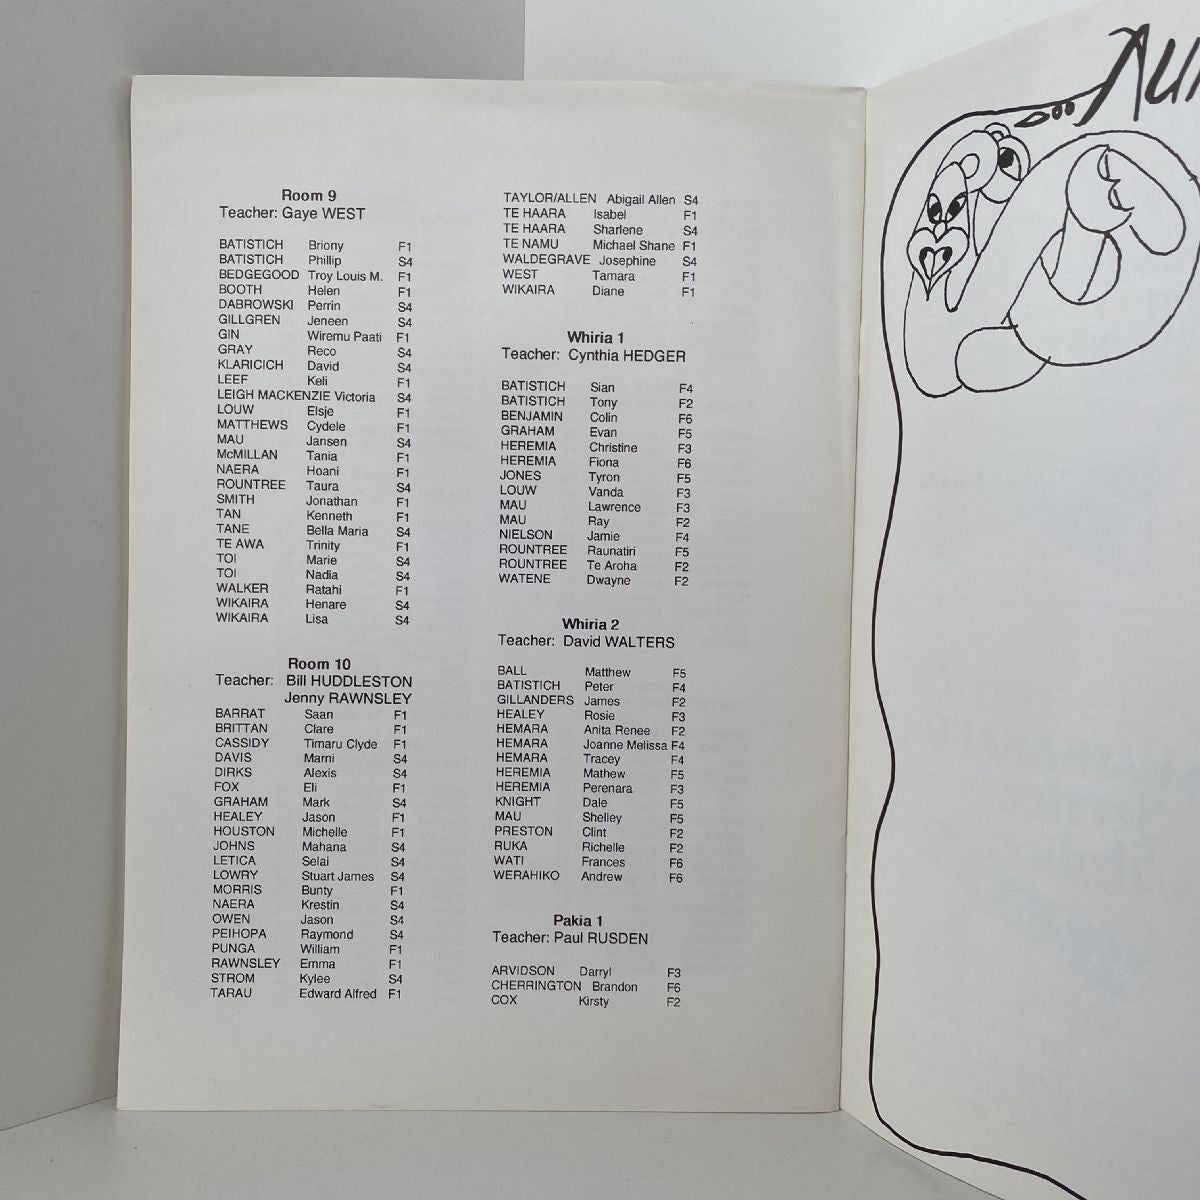 Room 9
Teacher: Gaye WEST
BATISTICH Briony F1
BATISTICH Phillip S4
BEDGEGOOD Troy Louis M. F1
BOOTH Helen F1
DABROWSKI Perrin S4
GILLGREN Jeneen S4
GIN Wiremu Paati F1
GRAY Reco S4
KLARICICH David S4
LEEF Keli F1
LEIGH MACKENZIE Victoria S4
LOUW Elsje F1
MATTHEWS Cydele F1
MAU Jansen S4
McMILLAN Tania F1
NAERA Hoani F1
ROUNTREE Taura S4
SMITH Jonathan F1
TAN Kenneth F1
TANE Bella Maria S4
TE AWA Trinity F1
TOI Marie S4
TOI Nadia S4
WALKER Ratahi F1
WIKAIRA Henare S4
WIKAIRA Lisa S4
Room 10
Teacher: Bill HUDDLESTON
Jenny RAWNSLEY
BARRAT Saan F1
BRITTAN Clare F1
CASSIDY Timaru Clyde F1
DAVIS Marni S4
DIRKS Alexis S4
FOX Eli F1
GRAHAM Mark S4
HEALEY Jason F1
HOUSTON Michelle F1
JOHNS Mahana S4
LETICA Selai S4
LOWRY Stuart James S4
MORRIS Bunty F1
NAERA Krestin S4
OWEN Jason S4
PEIHOPA Raymond S4
PUNGA William F1
RAWNSLEY Emma F1
STROM Kylee S4
TARAU Edward Alfred F1
TAYLOR/ALLEN Abigail Allen S4
TE HAARA Isabel F1
TE HAARA Sharlene S4
TE NAMU Michael Shane F1
WALDEGRAVE Josephine S4
WEST Tamara F1
WIKAIRA Diane F1
Whiria 1
Teacher: Cynthia HEDGER
BATISTICH Sian F4
BATISTICH Tony F2
BENJAMIN Colin F6
GRAHAM Evan F5
HEREMIA Christine F3
HEREMIA Fiona F6
JONES Tyron F5
LOUW Vanda F3
MAU Lawrence F3
MAU Ray F2
NIELSON Jamie F4
ROUNTREE Raunatiri F5
ROUNTREE Te Aroha F2
WATENE Dwayne F2
Whiria 2
Teacher: David WALTERS
BALL Matthew F5
BATISTICH Peter F4
GILLANDERS James F2
HEALEY Rosie F3
HEMARA Anita Renee F2
HEMARA Joanne Melissa F4
HEMARA Tracey F4
HEREMIA Mathew F5
HEREMIA Perenara F3
KNIGHT Dale F5
MAU Shelley F5
PRESTON Clint F2
RUKA Richelle F2
WATI Frances F6
WERAHIKO Andrew F6
Pakia 1
Teacher: Paul RUSDEN
ARVIDSON Darryl F3
CHERRINGTON Brandon F6
COX Kirsty F2